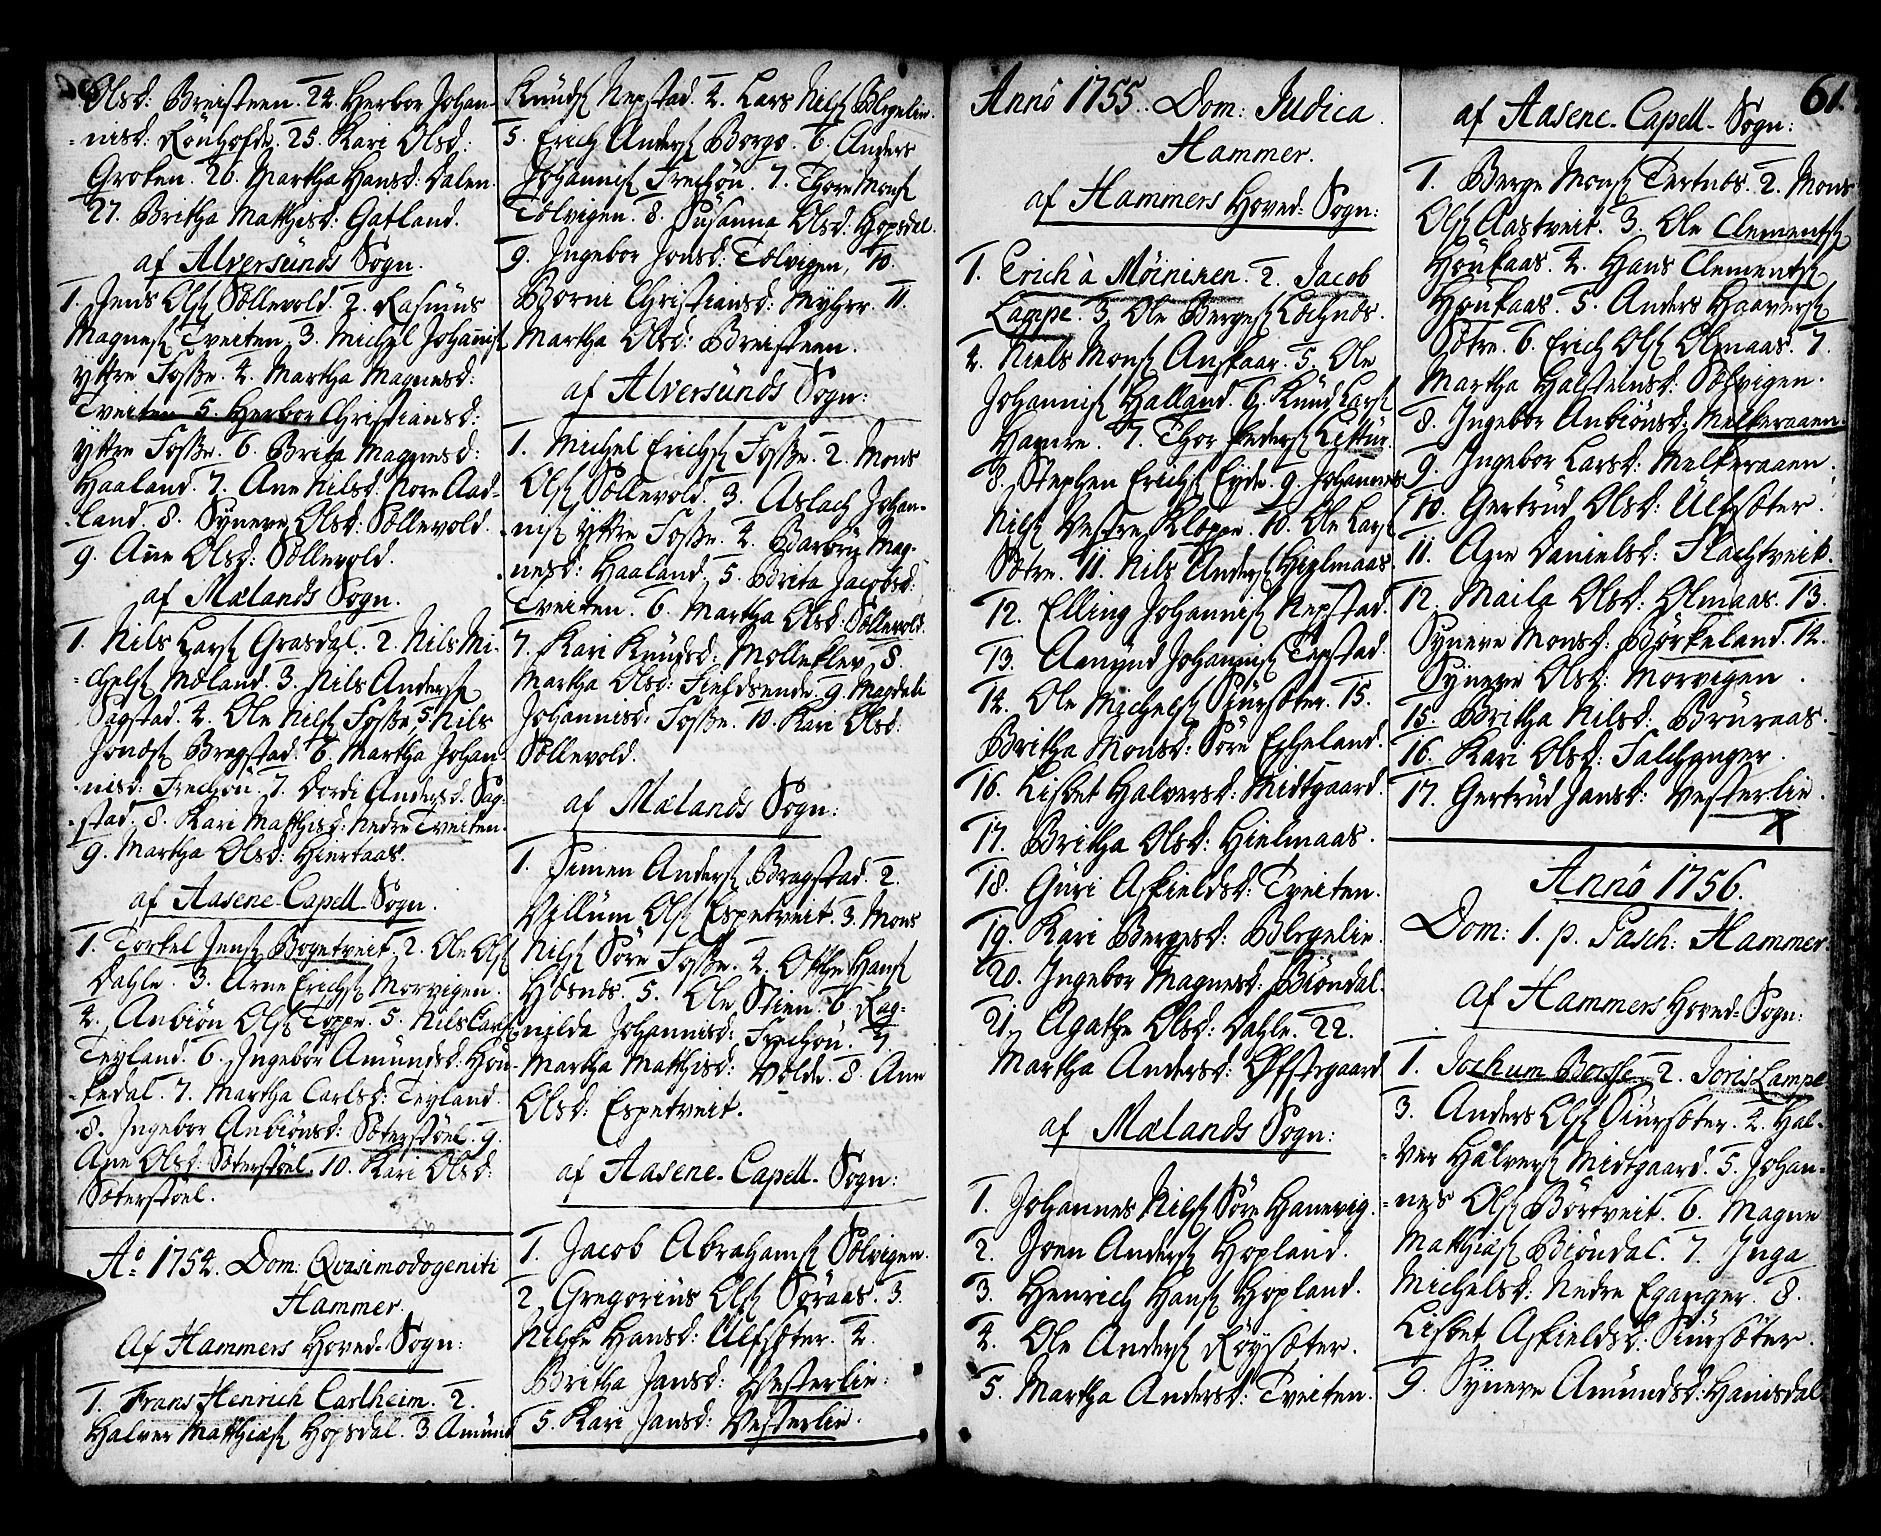 Olsd: Breisteen. 24. Herbor Johan-
=nisd: Rönhofde. 25. Kari Olsd:
Groten. 26. Martha Hansd: Dalen.
27. Britha Matthisd: Gatland.
af Alversünds Sogn.
1. Jens Ols Söllevold. 2. Rasmüs
Magnes Tveiten. 3. Michel Johannis
yttre Fosse. 4. Martha Magnesd:
Tveiten 5. Herbor Christiansd:
yttre Fosse. 6. Brita Magnesd:
Haaland. 7. Ane Nilsd: Nore Aad-
-land. 8. Syneve Olsd: Söllevold.
9. Ane Olsd: Söllevold.
af Mælands Sogn.
1. Nils Lars Grasdal. 2. Nils Mi-
=chels Mæland. 3. Nils Anders
Sagstad. 4. Ole Nils Fosse 5. Nils
Jons Bragstad. 6. Martha Johan-
nisd: Frechöü. 7. Dordi Andersd. Sag-
-stad. 8. Kari Matthisd: Nedre Tveiten.
9. Martha Olsd: Hiertaas.
af Aasene Capell-Sogn.
1. Torkel Jens Bogetveit. 2. Ole Ols
Dahle. 3. Arne Erichs Morvigen.
4. Anbiön Ols Toppe. 5. Nils Carls
Teyland. 6. Ingebor Amündsd: Höü-
-kedal. 7. Martha Carlsd: Teyland.
8. Ingebor Anbiönsd: Sæterstöel. 9.
Ane Olsd: Sæterstöel. 10. Kari Olsd:
Sæterstöel.
Ao 1754. Dom: Qvasimodogeniti
Hammer.
Af Hammers Hoved-Sogn:
1. Frans Henrich Carlheim. 2.
Halver Matthias Hopsdal. 3 Amünd
Knüds Nepstad. 4. Lars Nils Blegelie.
5. Erich Anders Borge. 6. Anders
Johannis Frechöü. 7. Thore Mons
Tælvigen. 8. Susanna Olsd: Hopsdal.
9. Ingebor Jonsd: Tælvigen, 10.
Börni Christiansd: Myhre. 11.
Martha Olsd: Breisteen.
af Alversünds Sogn:
1. Michel Erichs Fosse. 2. Mons
Ols Söllevold. 3. Aslach Johan-
-nis yttre Fosse. 4. Barbry Mag-
nesd: Haaland. 5. Brita Jacobsd:
Tveiten. 6. Martha Olsd: Söllevold.
7. Kari Knüdsd: Mollekley. 8.
Martha Olsd: Fieldsende. 9. Magdali
Johannisd: Fosse. 10. Kari Olsd:
Söllevold.
af Mælands Sogn:
1. Simen Anders Bragstad. 2.
Villüm Ols Espetveit. 3. Mons
Nils Söre Fosse. 4. Otthe Hans
Hosnæs. 5. Ole Stien. 6. Rag-
nilda Johannisd: Frechöü. 7.
Martha Matthisd: Volde. 8. Ane
Olsd: Espetveit.
af Aasene-Capell-Sogn:
1. Jacob Abrahams Sælvigen.
2. Gregorius Ols Söraas. 3.
Nilse Hansd: Ulfsæter. 4.
Britha Jansd: Vesterlie.
5. Kari Jansd: Vesterlie.
Anno 1755. Dom: Judica.
Hammer.
af Hammers Hoved-Sogn:
1. Erich à Möiniren. 2. Jacob
Lampe. 3. Ole Berges Lochnæs.
4. Niels Mons Anskaar. 5. Ole
Johannis Halland. 6. Knud Lars
Hamre. 7. Thor Peders Littür.
8. Stephen Erichs Eyde. 9. Johannes
Nils Vestre Kloppe. 10. Ole Lars
Sætre. 11. Nils Anders Hielmaas
12. Elling Johannis Nepstad.
13. Amünd Johannis Tepstad.
14. Ole Michels Siürsæter. 15.
Britha Monsd: Söre Echeland.
16. Lisbet Halversd: Midtgaard.
17. Britha Olsd: Hielmaas.
18. Güri Askieldsd: Tveiten.
19. Kari Bergesd: Blegelie.
20. Ingebor Magnesd: Biöndal.
21. Agathe Olsd: Dahle. 22.
Martha Andersd: Öfstegaard
af Mælands Sogn:
1. Johannes Nils Söre Hanevig.
2. Joen Anders Hopland.
3. Henrich Hans Hopland.
4. Ole Anders Röysæter.
5. Martha Andersd: Tveiten.
61.
af Aasene-Capell-Sogn:
1. Berge Mons Tertnæs. 2. Mons
Ols Aastveit. 3. Ole Clements
Höükaas. 4. Hans Clements
Höükaas. 5. Anders Haavers
Sætre. 6. Erich Ols Olmaas. 7.
Martha Halsteinsd: Sælvigen.
8. Ingebor Anbiönsd: Melkeraaen.
9. Ingebor Larsd: Melkeraaen.
10. Gertrüd Olsd: Ulfsæter.
11. Ane Danielsd: Flachtveit.
12. Maila Olsd: Olmaas. 13.
Syneve Monsd: Börkeland. 14.
Syneve Olsd: Morvigen.
15. Britha Nilsd: Brüraas.
16. Kari Olsd: Salhanger.
17. Gertrüd Jansd: Vesterlie.
Anno 1756.
Dom: 1. p. Pasch: Hammer.
Af Hammers Hoved-Sogn:
1. Jochum Bosse. 2. Joris Lampe
3. Anders Ols Siürsæter. 4. Hal-
=ver Halvers Midtgaard. 5. Johan-
=nes Ols Börtveit. 6. Magne
Matthias Biöndal. 7. Inga
Michelsd: Nedre Eganger. 8.
Lisbet Askieldsd: Siürsæter.
9. Syneve Amündsd: Hanisdal